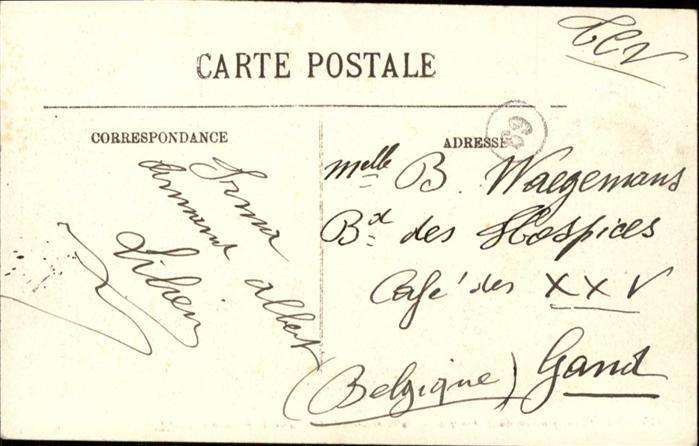 TCV
CARTE POSTALE
CORRESPONDANCE
ADRESSE
Irma
Armand Albert
Melle B. Waegemans
Bd des Hospices
Café des XXV
(Belgique) Gand